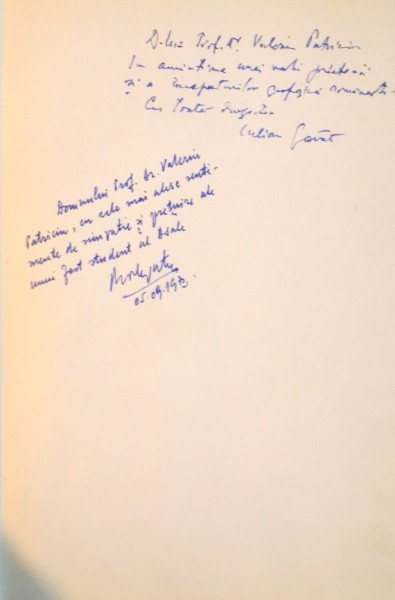 D-lui Prof. Dr. Valeriu Patriciu
In amintirea unei vechi prietenii
și a începuturilor geofizicii românești.
Cu toată dragostea
Iulian Gavăt
Domnului Prof. Dr. Valeriu
Patriciu, cu cele mai alese senti-
mente de simpatie și prețuire ale
unui fost student al Dsale
05.09.1973.